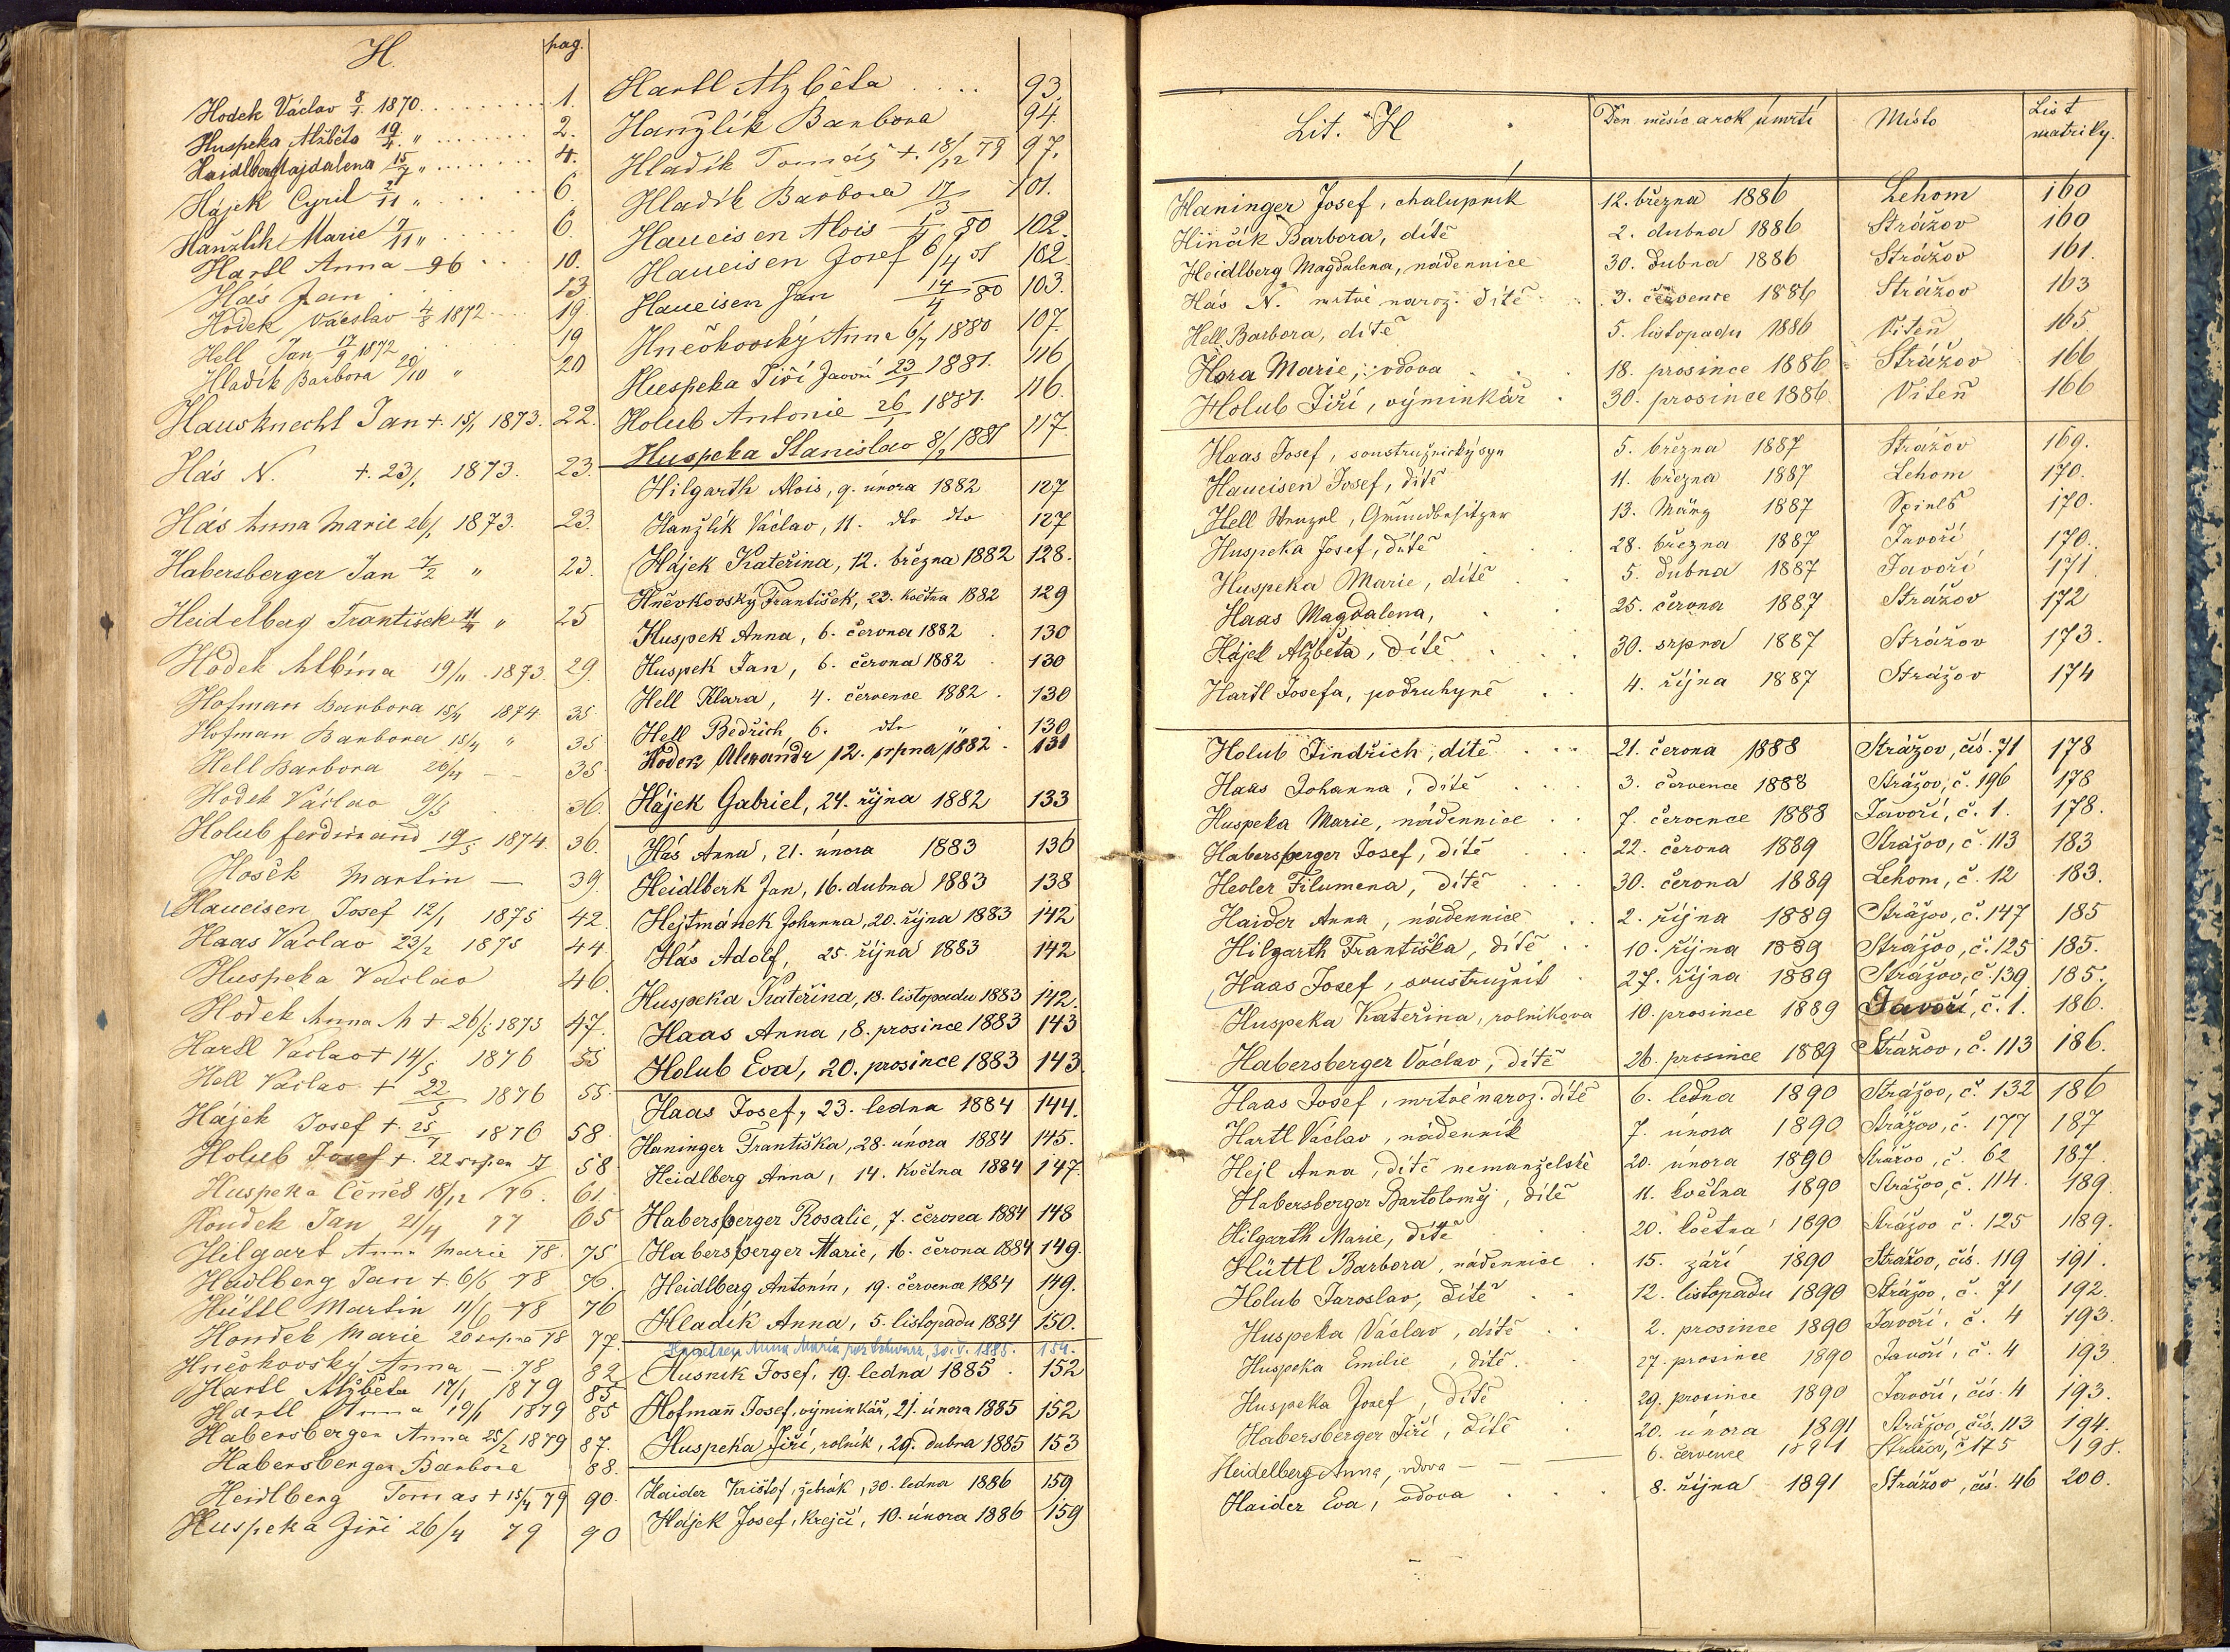 H. pag.
Hodek Václav 8/1 1870. 1.
Huspeka Alžběta 19/4. " 2.
Haidlberg Majdalena 15/7 " 4.
Hájek Cyril 2/11 " 6.
Hanžlík Marie 7/11 " 6.
Hartl Anna — 96 10.
Hás Jan 13
Hodek Václav 4/8 1872 19.
Hell Jan 17/9 1872 19
Hladík Barbora 20/10 " 20
Hausknecht Jan +. 15/1 1873. 22.
Hás N. +. 23/1 1873. 23.
Hás Anna Marie 26/1 1873. 23.
Habersberger Jan 7/2 " 23.
Heidelberg František 11/4 " 25
Hodek Albína 19/11 . 1873. 29.
Hofman Barbora 15/4 1874 35
Hofman Barbora 15/4 " 35
Hell Barbora 26/4 — — 35
Hodek Václav 9/5 36.
Holub ferdinand 19/5 1874. 36.
Hošek Martin — 39.
Haueisen Josef 12/1 1875 42.
Haas Václav 23/2 1875 44.
Huspeka Václav 46.
Hodek Anna M + 26/5 1875 47.
Hartl Václav + 14/5 1876 55
Hell Václav + 22/5 1876 55.
Hájek Josef +. 25/7 1876 58.
Holub Josef +. 22 srpen 58
Huspeka Čeněk 18/12 76. 61.
Houdek Jan 21/4 77 65
Hilgart Anna Marie 78. 75
Heidlberg Jan +. 6/6 78 76.
Hüttl Martin 11/6 78 76
Houdek Marie 20 srpna 78 77.
Hněvkovský Anna — 78 82
Hartl Alžběta 17/1 1879 85
Hartl Anna 19/1 1879 85
Habersberger Anna 25/2 1879 87.
Habersberger Barbora 88.
Heidlberg Tomas + 15/4 79 90.
Huspeka Jiří 26/4 79 90
Hartl Alžběta 93.
Hanžlík Barbora 94.
Hladík Tomáš +. 18/12 79 97.
Hladík Barbora 17/3 101.
Haueisen Alois 80 102.
Haueisen Josef 6/4 102.
Haueisen Jan 14/4 80 103.
Hněvkovský Anna 6/7 1880 107.
Huspeka Jiří Javoří 23/1 1881. 116
Holub Antonie 26/1 1881. 116.
Huspeka Stanislav 8/2 1881 117.
Hilgarth Alois, 9. února 1882 127
Hanžlík Václav, 11. dto dto 127
Hájek Kateřina, 12. března 1882 128.
Hněvkovský František, 23. května 1882 129
Huspek Anna, 6. června 1882 130
Huspek Jan, 6. června 1882 130
Hell Klara, 4. července 1882 130
Hell Bedřich, 6. dto " 130
Hodek Alexandr 12. srpna 1882 131
Hájek Gabriel, 24. října 1882 133
Hás Anna, 21. února 1883 136
Heidlberk Jan, 16. dubna 1883 138
Hejtmánek Johanna, 20. října 1883 142
Hás Adolf, 25. října 1883 142
Huspeka Kateřina, 18. listopadu 1883 142.
Haas Anna, 8. prosince 1883 143
Holub Eva, 20. prosince 1883 143.
Haas Josef, 23. ledna 1884 144.
Haninger Františka, 28. února 1884 145.
Heidlberg Anna, 14. května 1884 147.
Habersberger Rosalie, 7. června 1884 148
Habersberger Marie, 16. června 1884 149.
Heidlberg Antonín, 19. července 1884 149.
Hladík Anna, 5. listopadu 1884 150.
Anna Maria 30. V. 1885. 154.
Husnik Josef, 19. ledna 1885 152
Hofmann Josef, výminkář, 21. února 1885 152
Huspeka Jiří, rolník, 29. dubna 1885 153
Haider Krištof, žebrák, 30. ledna 1886 159
Hájek Josef, krejčí, 10. února 1886 159
Lit. H Den měsíc a rok úmrtí Místo List matriky.
Haninger Josef, chalupník 12. března 1886 Lehom 160
Hinčík Barbora, dítě 2. dubna 1886 Strážov 160
Heidlberg Magdalena, nádennice 30. dubna 1886 Strážov 161.
Hás N. mrtvé naroz. dítě 3. července 1886 Strážov 163
Hell Barbora, dítě 5. listopadu 1886 Viteň 165
Hora Marie, vdova 18. prosince 1886 Strážov 166
Holub Jiří, výminkář 30. prosince 1886 Viteň 166
Haas Josef, soustružnický syn 5. března 1887 Strážov 169.
Haueisen Josef, dítě 11. března 1887 Lehom 170.
Hell Wenzel, Grundbesitzer 13. März 1887 170.
Huspeka Josef, dítě 28. března 1887 Javoří 170.
Huspeka Marie, dítě 5. dubna 1887 Javoří 171
Haas Magdalena, 25. června 1887 Strážov 172
Hájek Alžběta, dítě 30. srpna 1887 Strážov 173.
Hartl Josefa, podruhyně 4. října 1887 Strážov 174
Holub Jindřich, dítě 21. června 1888 Strážov, čís. 71 178
Haas Johanna, dítě 3. července 1888 Strážov, č. 196 178
Huspeka Marie, nádennice 7. července 1888 Javoří, č. 1. 178.
Habersberger Josef, dítě 22. června 1889 Strážov, č. 113 183
Heoler Filumena, dítě 30. června 1889 Lehom, č. 12 183.
Haider Anna, nádennice 2. října 1889 Strážov, č. 147 185
Hilgarth Františka, dítě 10. října 1889 Strážov, č. 125 185.
Haas Josef, soustružník 27. října 1889 Strážov, č. 139 185.
Huspeka Kateřina, rolníkova 10. prosince 1889 Javoří, č. 1. 186.
Habersberger Václav, dítě 26. prosince 1889 Strážov, č. 113 186.
Haas Josef, mrtvé naroz. dítě 6. ledna 1890 Strážov, č. 132 186
Hartl Václav, nádenník 7. února 1890 Strážov, č. 177 187
Hejl Anna, dítě nemanželské 20. února 1890 Strážov, č. 62 187.
Habersberger Bartoloměj, dítě 11. května 1890 Strážov, č. 114. 189.
Hilgarth Marie, dítě 20. května 1890 Strážov č. 125 189.
Hüttl Barbora, nádennice 15. září 1890 Strážov, čís. 119 191.
Holub Jaroslav, dítě 12. listopadu 1890 Strážov, č. 71 192.
Huspeka Václav, dítě 2. prosince 1890 Javoří, č. 4 193.
Huspeka Emilie, dítě 27. prosince 1890 Javoří, č. 4 193.
Huspeka Josef, dítě 29. prosince 1890 Javoří, čís. 4 193.
Habersberger Jiří, dítě 20. února 1891 Strážov, čís. 113 194.
Heidelberg Anna, vdova 6. července 1891 Strážov, č 175 198.
Haider Eva, vdova 8. října 1891 Strážov, čís. 46 200.